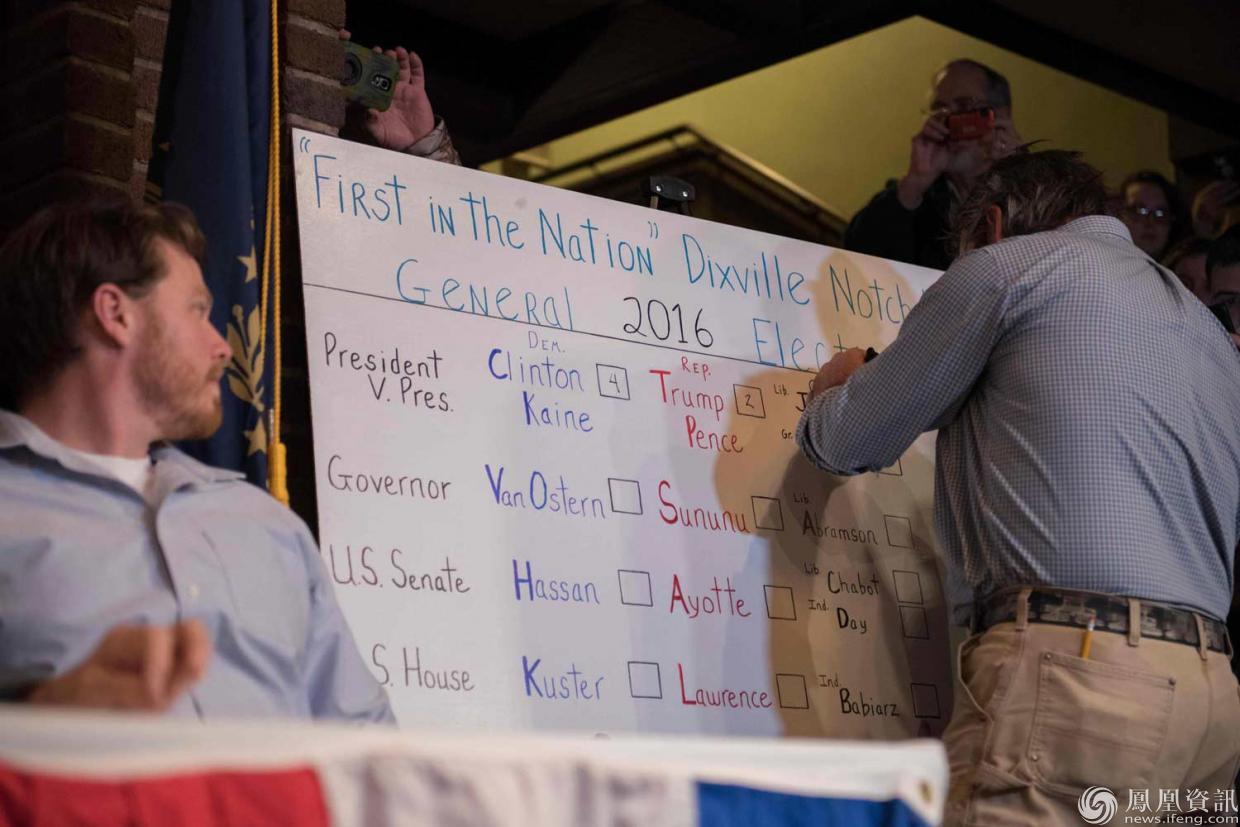 "First in the Nation" Dixville Notch
General 2016 Elect
President
V. Pres.
Dem.
Clinton 4
Kaine
Rep.
Trump 2
Pence
Lib. J
Gr.
Governor Van Ostern Sununu Lib. Abramson
U.S. Senate Hassan Ayotte Lib. Chabot
Ind. Day
S. House Kuster Lawrence Ind. Babiarz
鳳凰資訊
news.ifeng.com